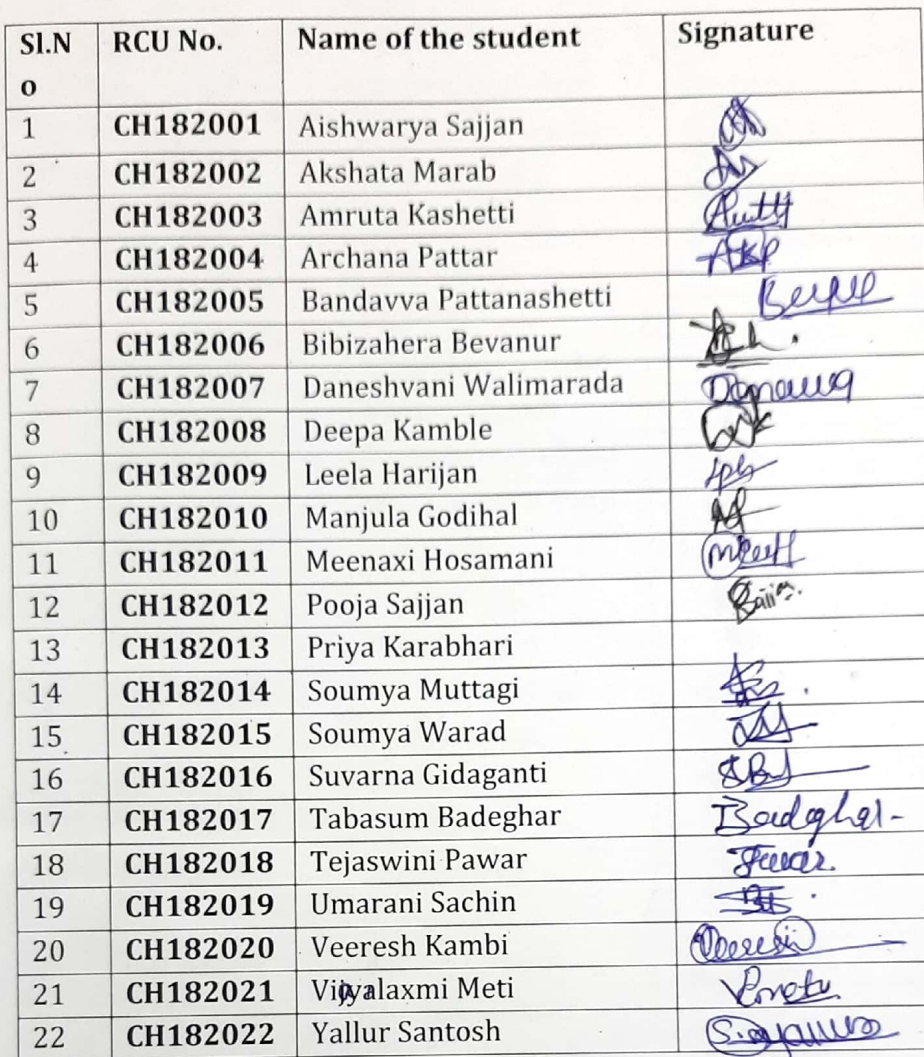 Sl.N RCU No. Name of the student Signature
o
1 CH182001 Aishwarya Sajjan
2 CH182002 Akshata Marab
3 CH182003 Amruta Kashetti
4 CH182004 Archana Pattar AKP
5 CH182005 Bandavva Pattanashetti
6 CH182006 Bibizahera Bevanur
7 CH182007 Daneshvani Walimarada
8 CH182008 Deepa Kamble
9 CH182009 Leela Harijan
10 CH182010 Manjula Godihal
11 CH182011 Meenaxi Hosamani
12 CH182012 Pooja Sajjan
13 CH182013 Priya Karabhari
14 CH182014 Soumya Muttagi
15 CH182015 Soumya Warad
16 CH182016 Suvarna Gidaganti
17 CH182017 Tabasum Badeghar Badeghar
18 CH182018 Tejaswini Pawar
19 CH182019 Umarani Sachin
20 CH182020 Veeresh Kambi
21 CH182021 Vijayalaxmi Meti
22 CH182022 Yallur Santosh